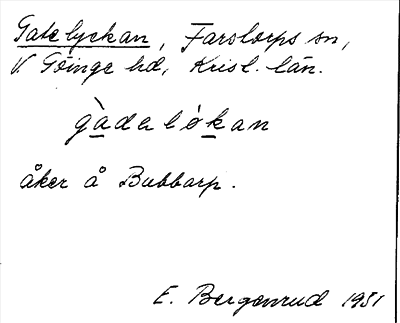 Gatelyckan, Farstorps sn,
V. Göinge hd, Krist. län.
gàdelòkan
åker å Bubbarp.
E. Bergenrud 1931